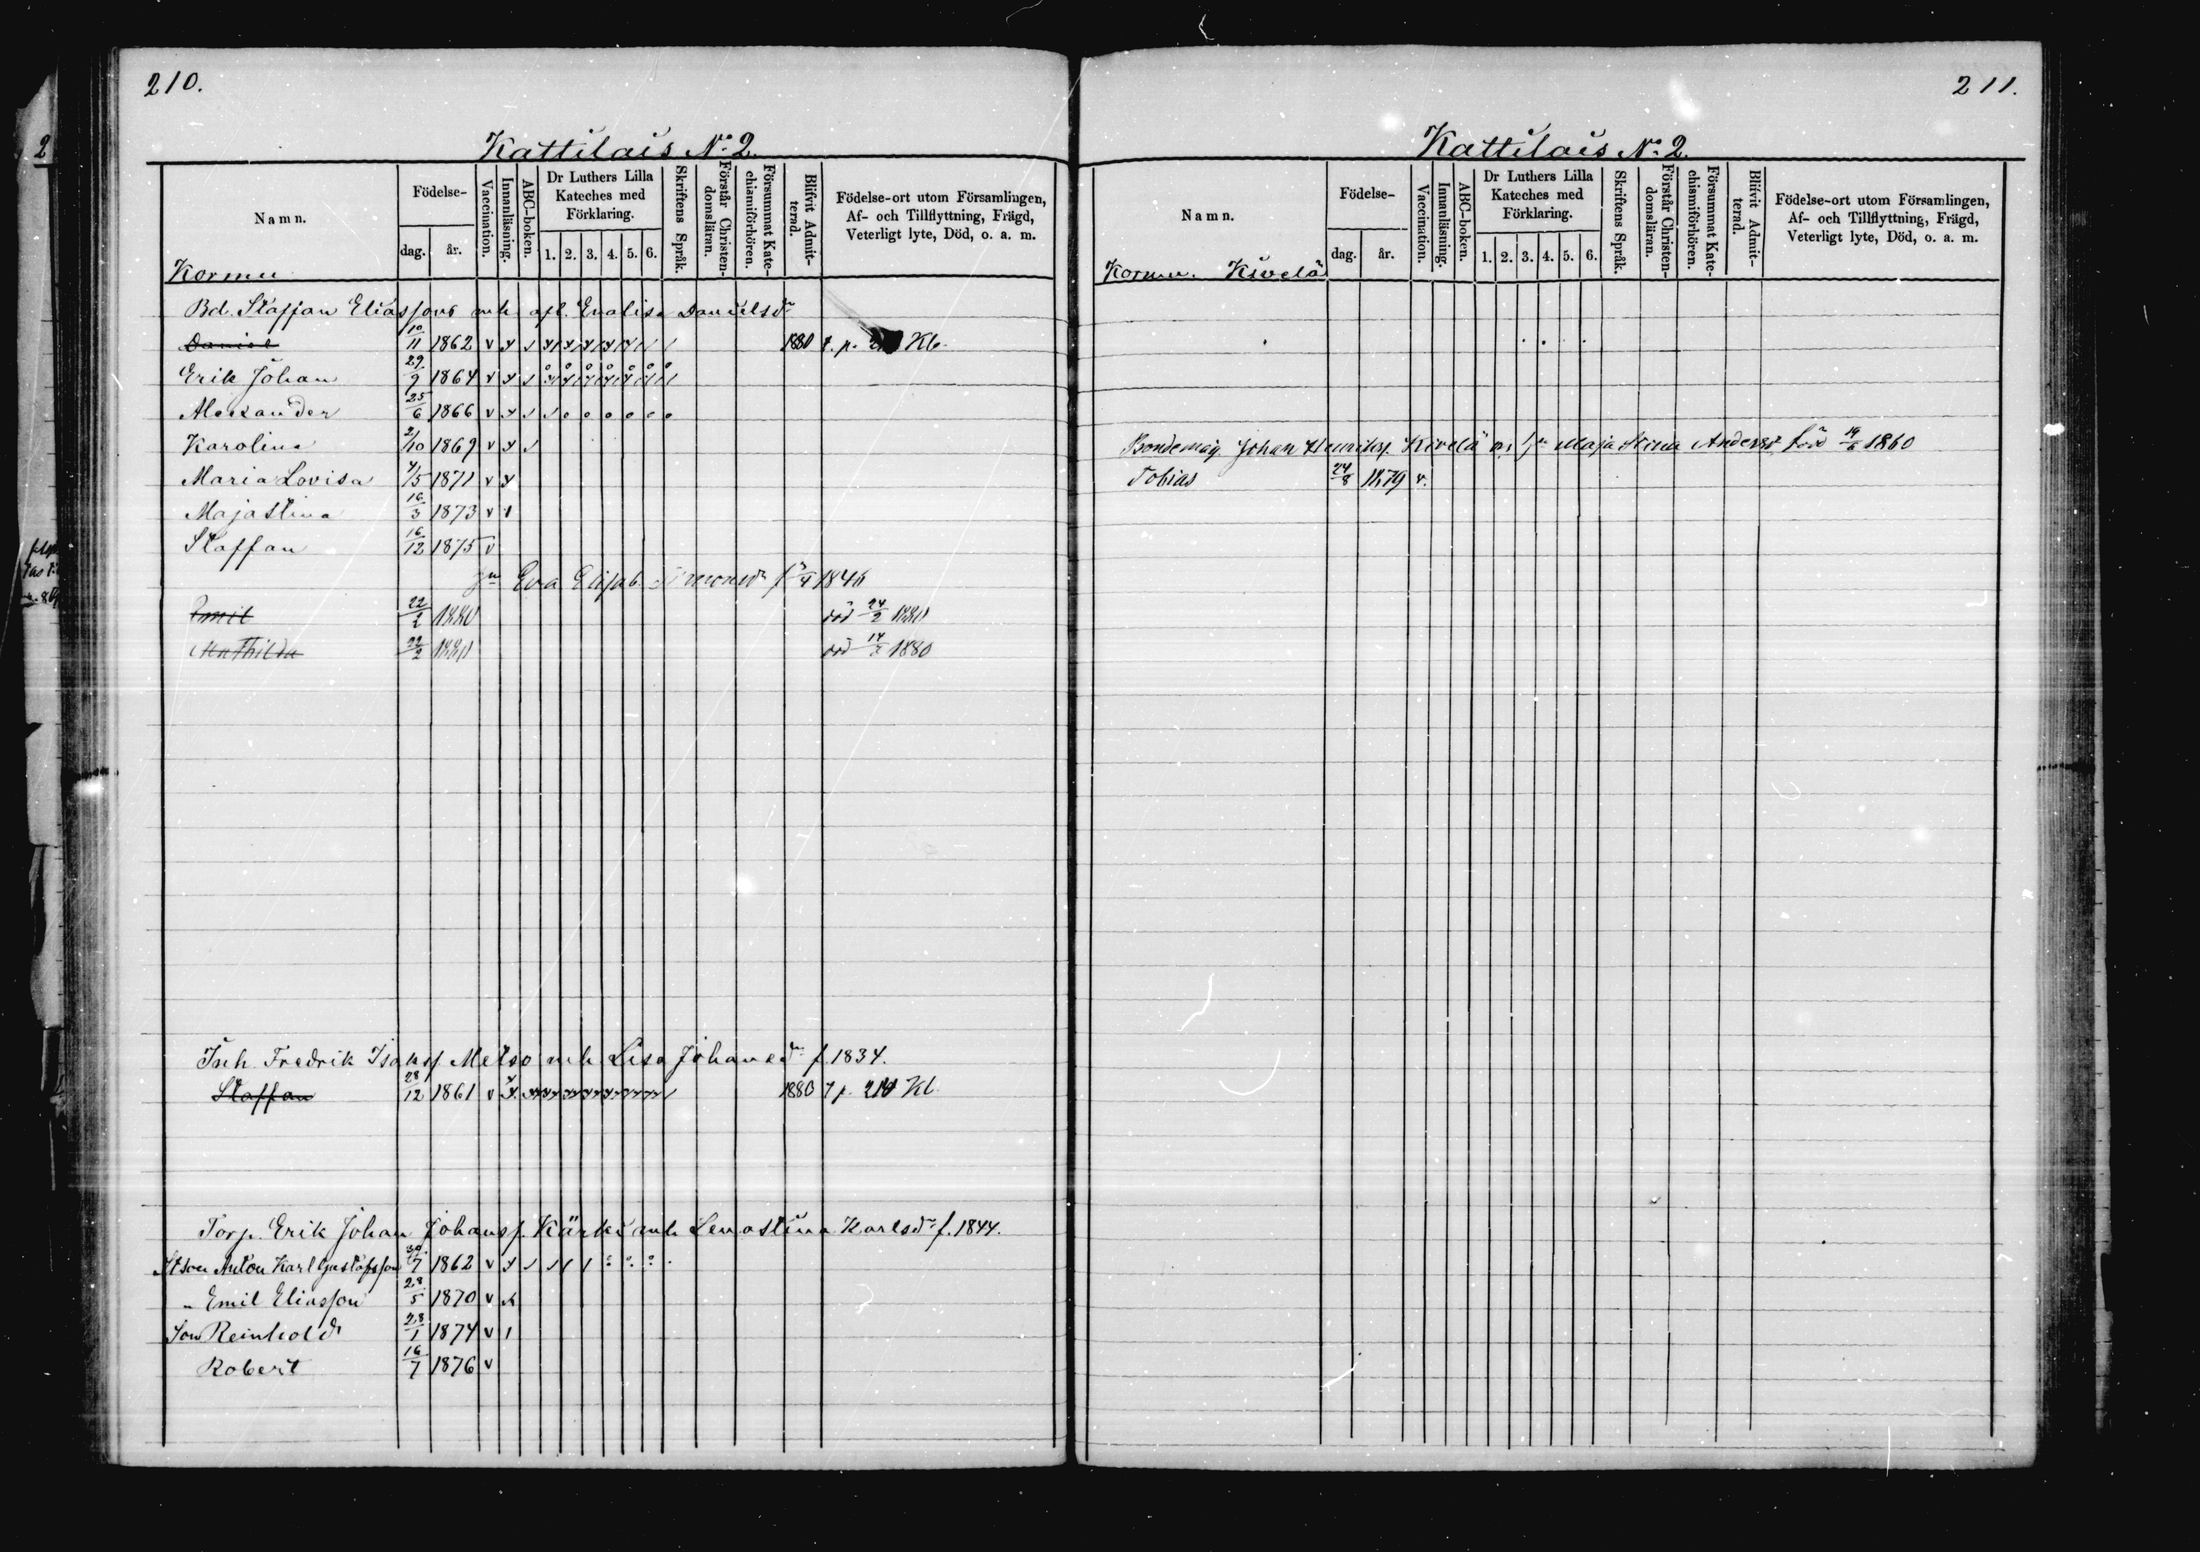 210.
Kattilais No. 2.
Namn.
Födelse-
dag.
år.
Vaccination.
Innanläsning.
ABC-boken.
Dr Luthers Lilla
Kateches med
Förklaring.
1. 2. 3. 4. 5. 6.
Skriftens Språk.
Förstår Christen-
domsläran.
Försummat Kate-
chismiförhören.
Blifvit Admit-
terad.
Födelse-ort utom Församlingen,
Af- och Tillflyttning, Frägd,
Veterligt lyte, Död, o. a. m.
Kormu
Bd. Staffan Eliassons mh afl. Evalisa Danielsdr
Daniel 10/11 1862 1880 Kb.
Erik Johan 29/9 1864
Alexander 25/6 1866
Karolina 2/10 1869
Maria Lovisa 4/5 1871
Majastina 16/3 1873
Staffan 16/12 1875
Eva Elisab. Simonsdr
Emil 22/2 1880 död 24/2 1880
Mathilda 22/2 1880 död 1880
Inh. Fredrik Isaksf. Metso mh Lisa Johansdr f. 1834.
Staffan 28/12 1861 1880 Kb
Torp. Erik Johan Johansf. Kärki mh Lenastina Karlsdr f. 1844.
Stson Anton Karl Gustafsson 30/7 1862
" Emil Eliasson 28/5 1870
Son Reinhold 28/1 1874
Robert 16/7 1876
211.
Kattilais No. 2.
Namn.
Födelse-
dag.
år.
Vaccination.
Innanläsning.
ABC-boken.
Dr Luthers Lilla
Kateches med
Förklaring.
1. 2. 3. 4. 5. 6.
Skriftens Språk.
Förstår Christen-
domsläran.
Försummat Kate-
chismiförhören.
Blifvit Admit-
terad.
Födelse-ort utom Församlingen,
Af- och Tillflyttning, Frägd,
Veterligt lyte, Död, o. a. m.
Kormu. Kivelä
Bondemåg Johan Henriksf. Kivelä Maja Stina Andersdr född 1860
Tobias 24/8 1879